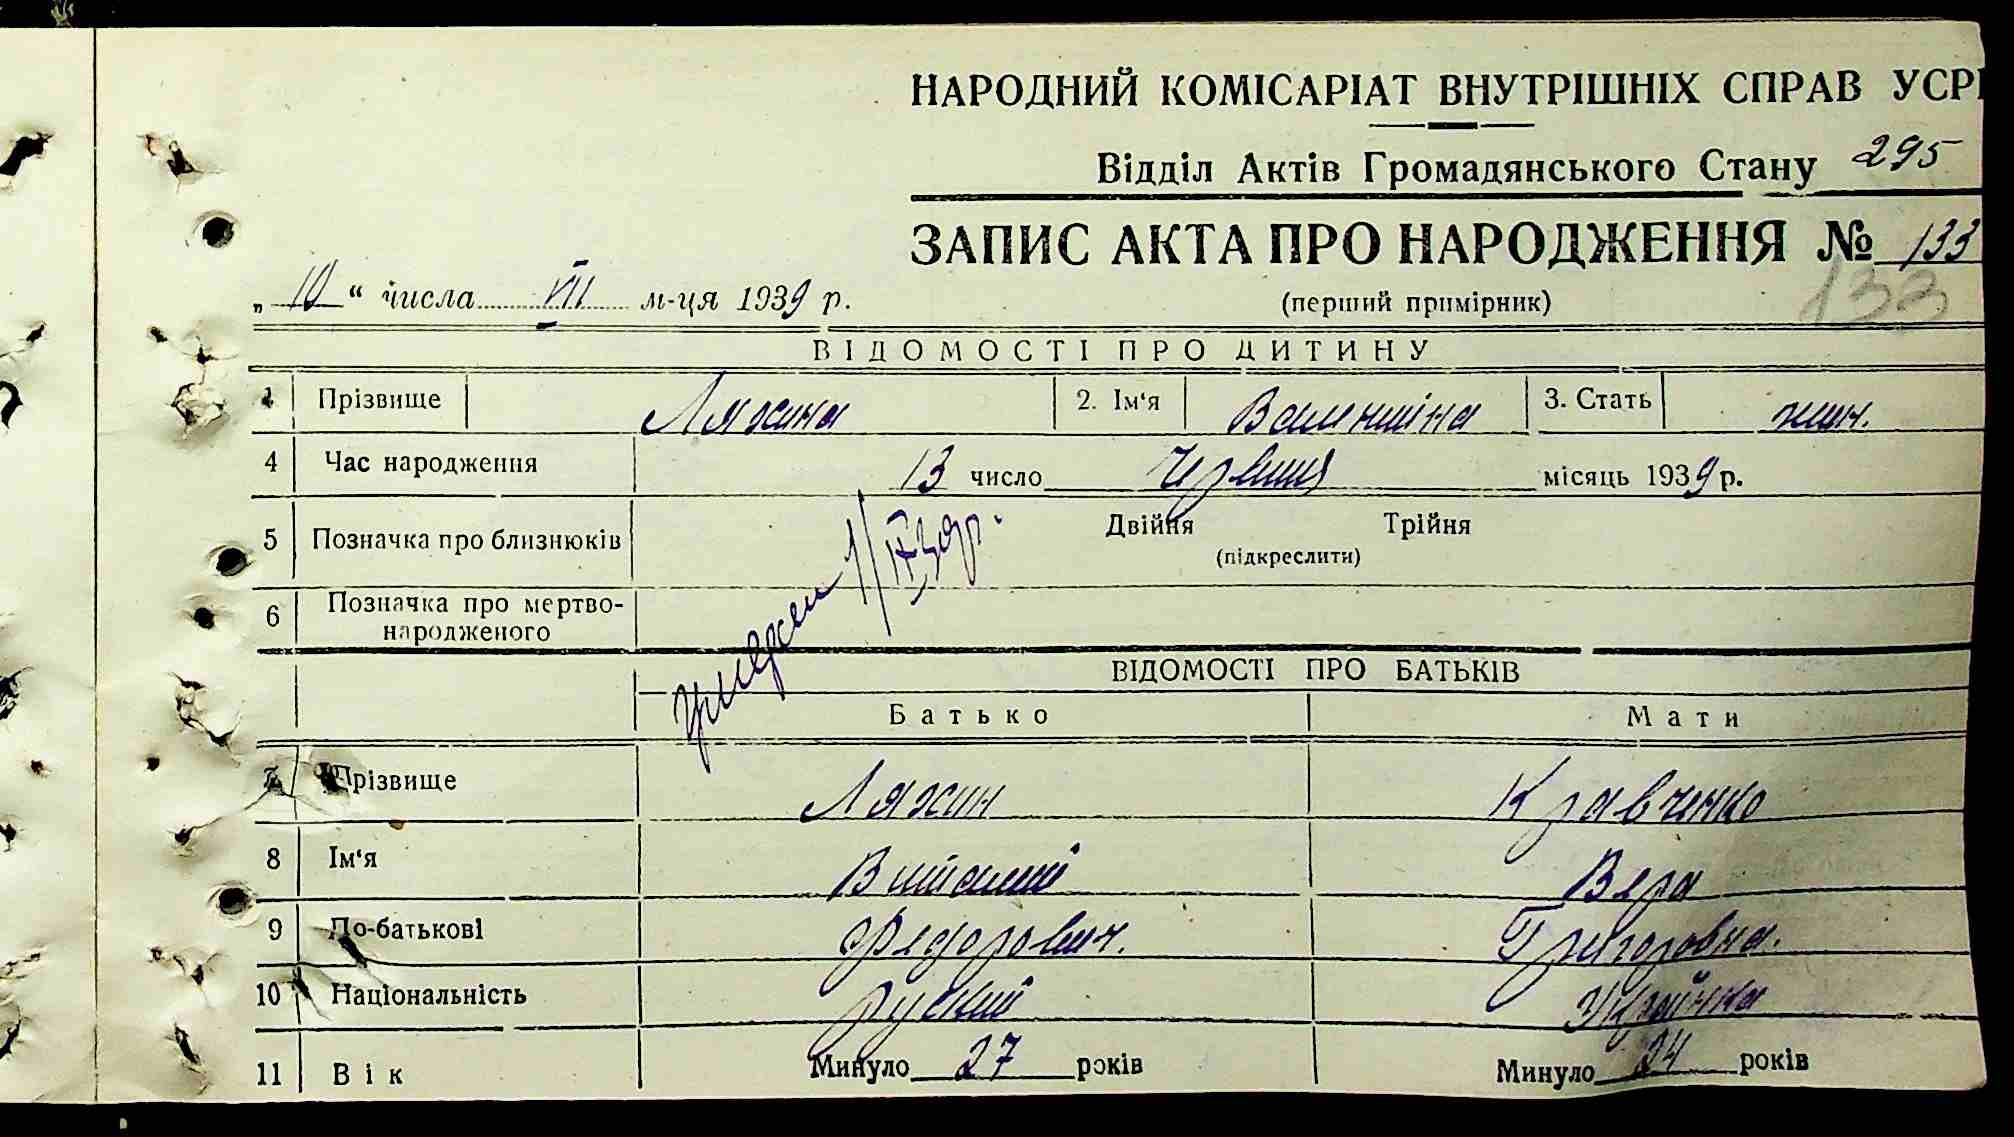 НАРОДНИЙ КОМІСАРІАТ ВНУТРІШНІХ СПРАВ УСР
Відділ Актів Громадянського Стану 295
ЗАПИС АКТА ПРО НАРОДЖЕННЯ № 133
„10“ числа VII м-ця 1939 р.
(перший примірник)
133
ВІДОМОСТІ ПРО ДИТИНУ
1 Прізвище Ляхина 2. Ім‘я Валентіна 3. Стать жін.
4 Час народження 13 число Червня місяць 1939 р.
5 Позначка про близнюків Двійня Трійня
(підкреслити)
6 Позначка про мертво-
народженого
ВІДОМОСТІ ПРО БАТЬКІВ
Батько Мати
7 Прізвище Ляхин Кравченко
8 Ім‘я Вера
9 По-батькові Федорович. Григоровна.
10 Національність руский Українка
11 Вік Минуло 27 років Минуло 24 років